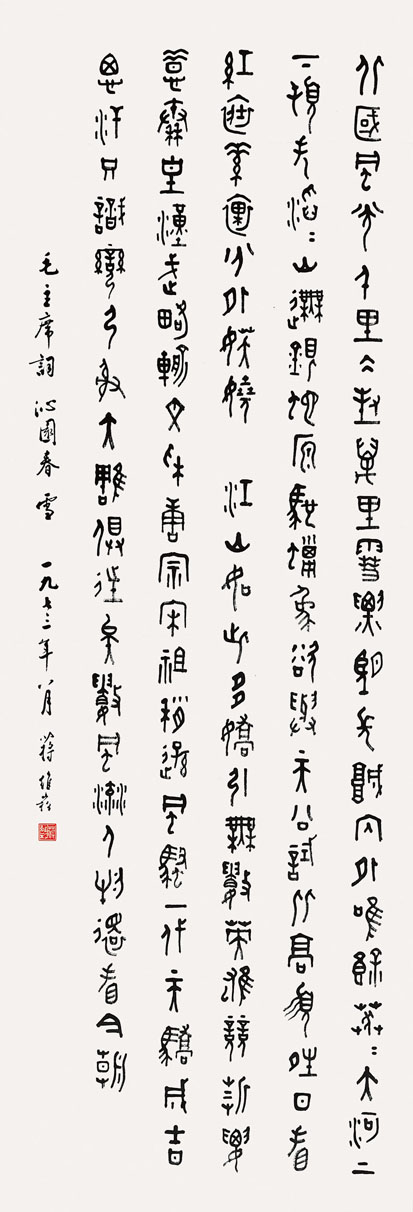 北國風光千里冰封萬里雪飄望長城內外唯餘莽〻大河上
下頓失滔〻山舞銀蛇原馳蠟象欲與天公試比高須晴日看
紅裝素裹分外妖嬈 江山如此多嬌引無數英雄競折腰
惜秦皇漢武略輸文采唐宗宋祖稍遜風騷一代天驕成吉
思汗只識彎弓射大雕俱往矣數風流人物還看今朝
毛主席詞沁園春雪 一九七三年八月 蔣維崧